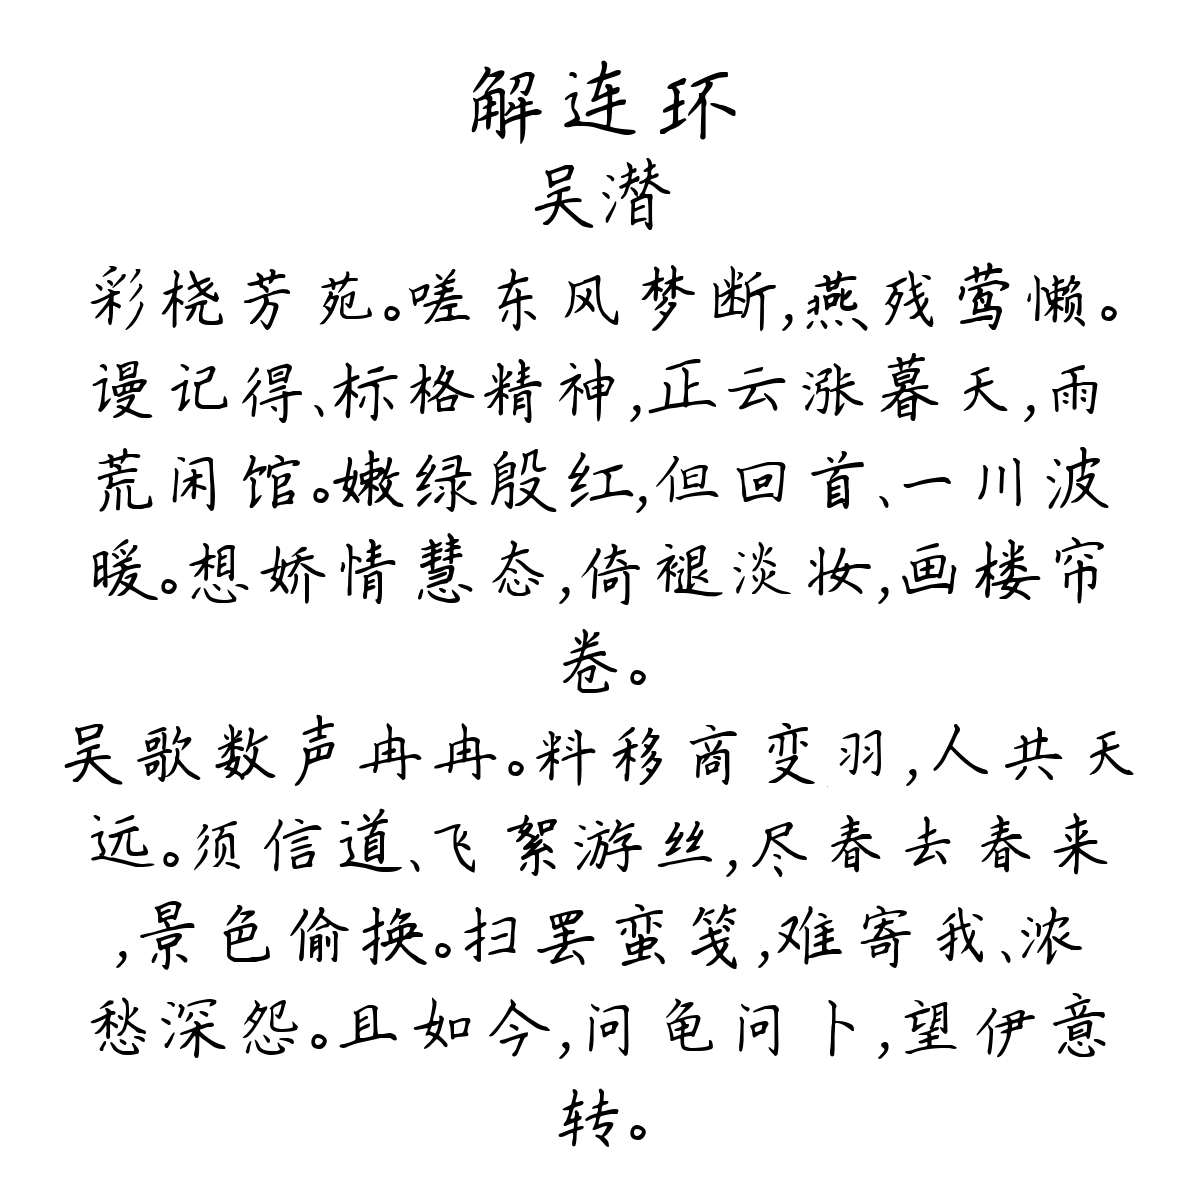 解连环
吴潜
彩桡芳苑。嗟东风梦断,燕残莺懒。
谩记得、标格精神,正云涨暮天,雨
荒闲馆。嫩绿殷红,但回首、一川波
暖。想娇情慧态,倚褪淡妆,画楼帘
卷。
吴歌数声冉冉。料移商变羽,人共天
远。须信道、飞絮游丝,尽春去春来
,景色偷换。扫罢蛮笺,难寄我、浓
愁深怨。且如今,问龟问卜,望伊意
转。